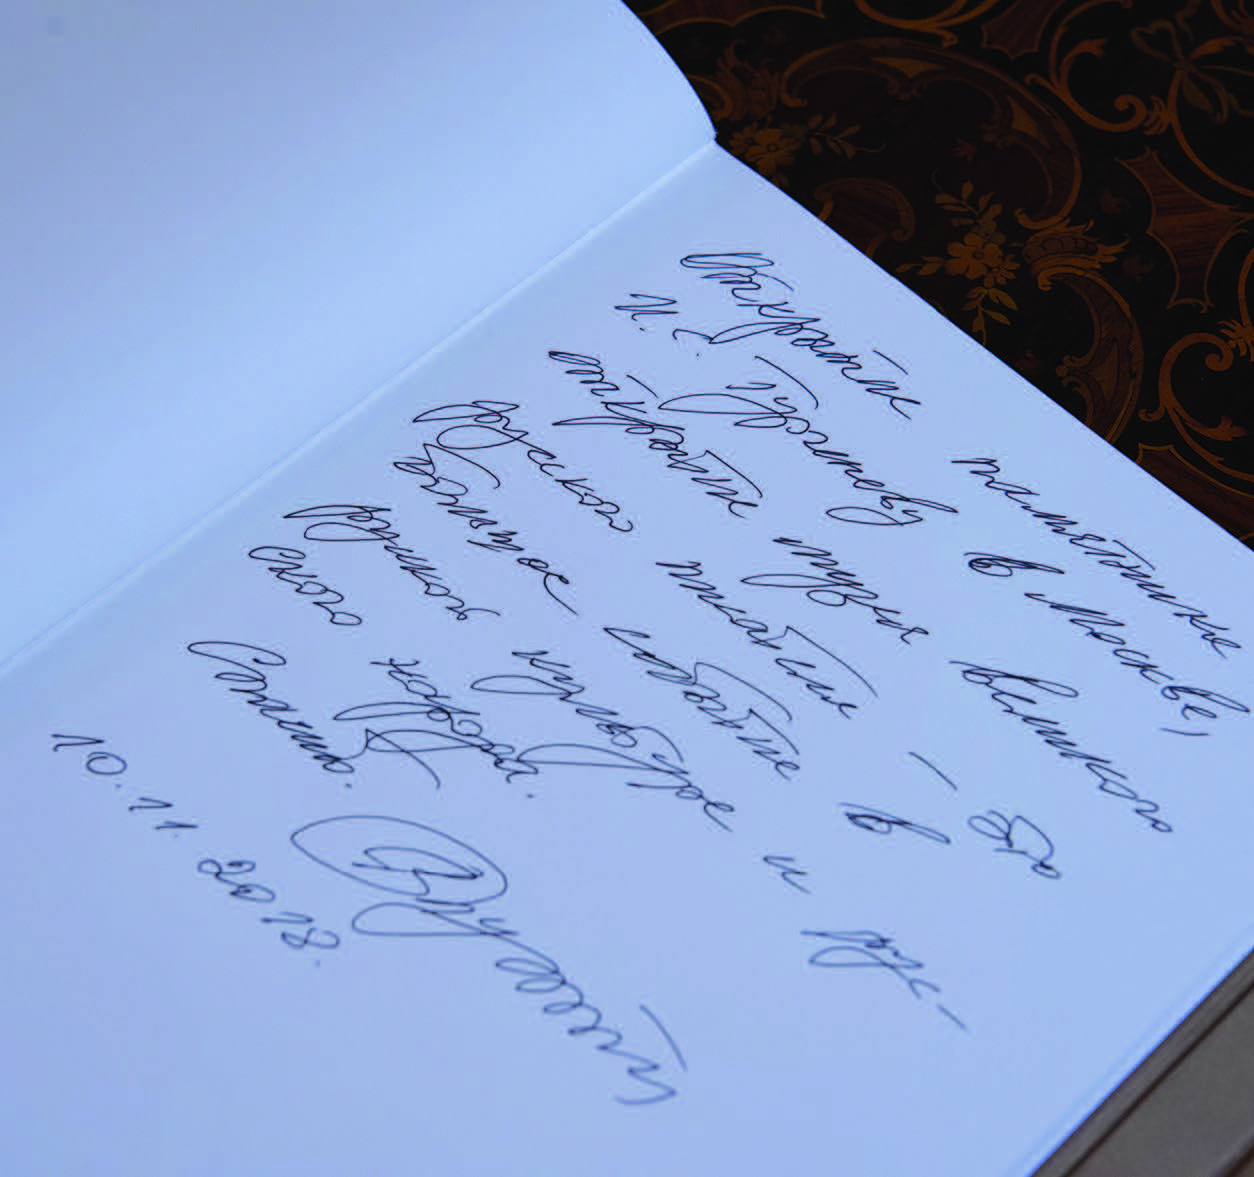 Открытие памятника
И.С. Тургеневу в Москве,
открытие музея великого
русского писателя – это
большое событие в
культуре и рус-
ского народа.
Спасибо.
10.11.2018.